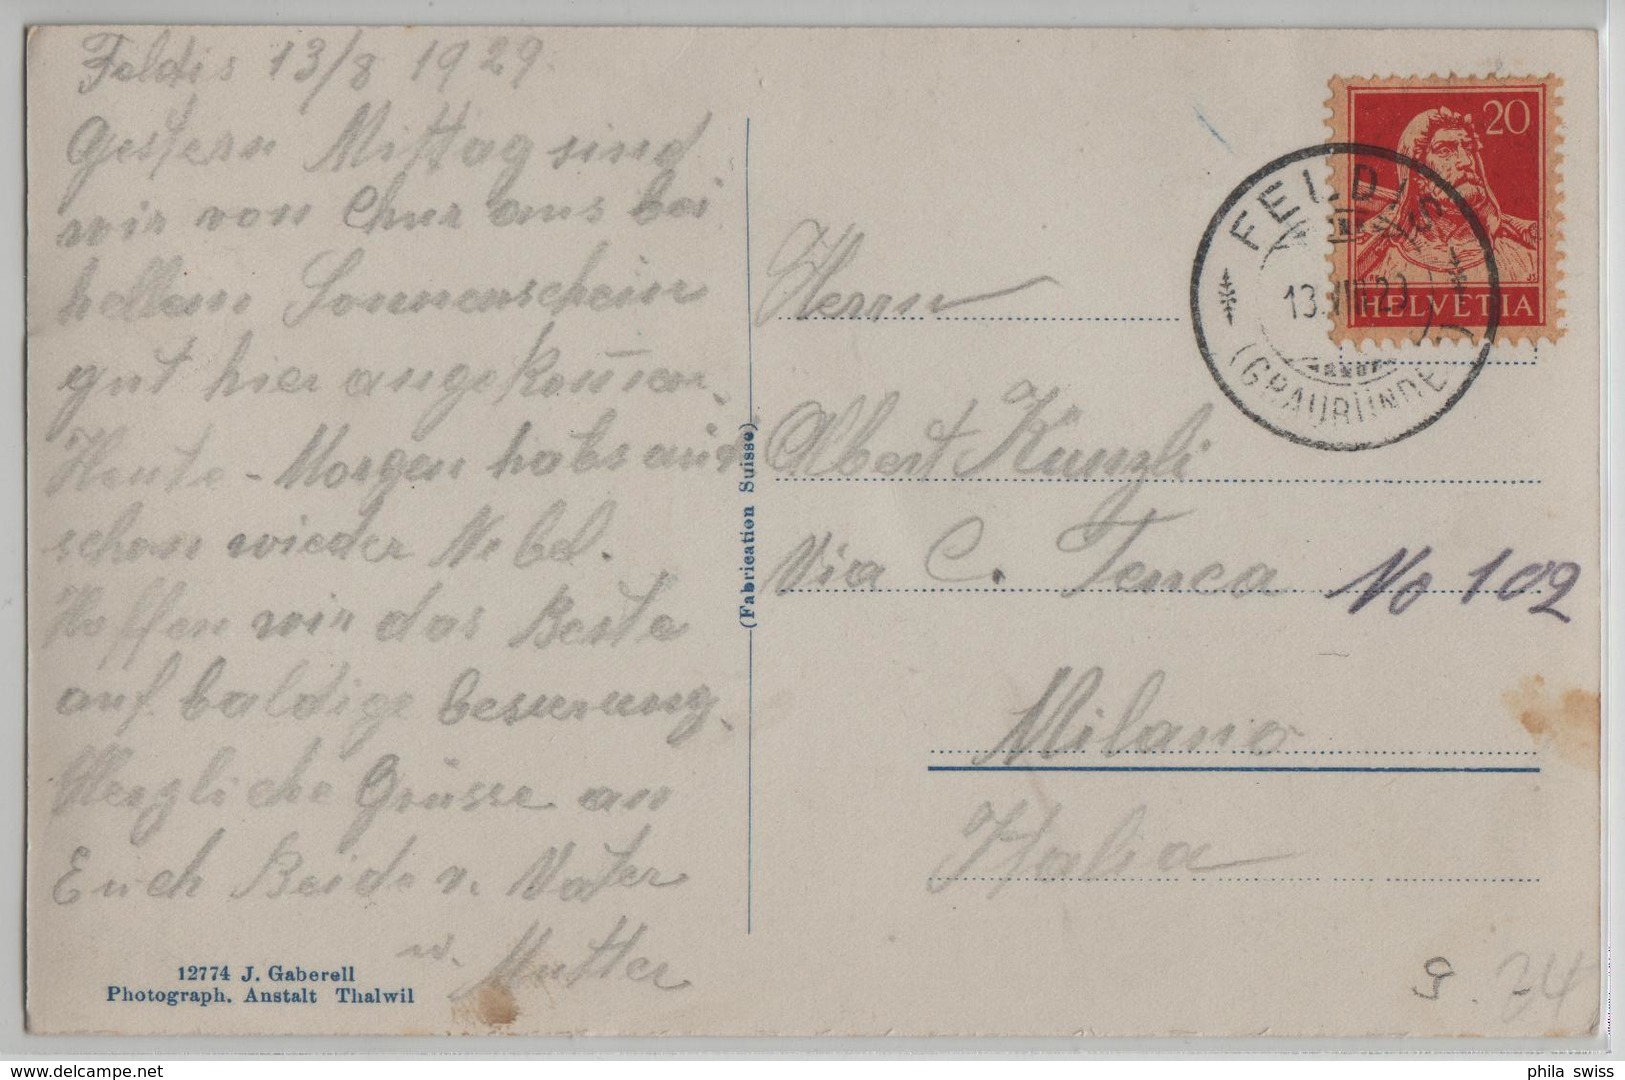 Feldis 13/8 1929.
Gestern Mittag sind
wir von Chur aus bei
hellem Sonnenschein
gut hier angekom̅en.
Heute-Morgen habs auch
schon wieder Nebel.
Hoffen wir das Beste
auf baldige besserung.
Herzliche Grüsse an
Euch Beide v. Vater
u. Mutter
12774 J. Gaberell
Photograph. Anstalt Thalwil
(Fabrication Suisse)
20
HELVETIA
FELDIS
13.VIII.29
(GRAUBÜNDEN)
Herrn
Albert Künzli
Via C. Tenca No 102
Milano
Italia
9.34
delcampe.net
phila_swiss